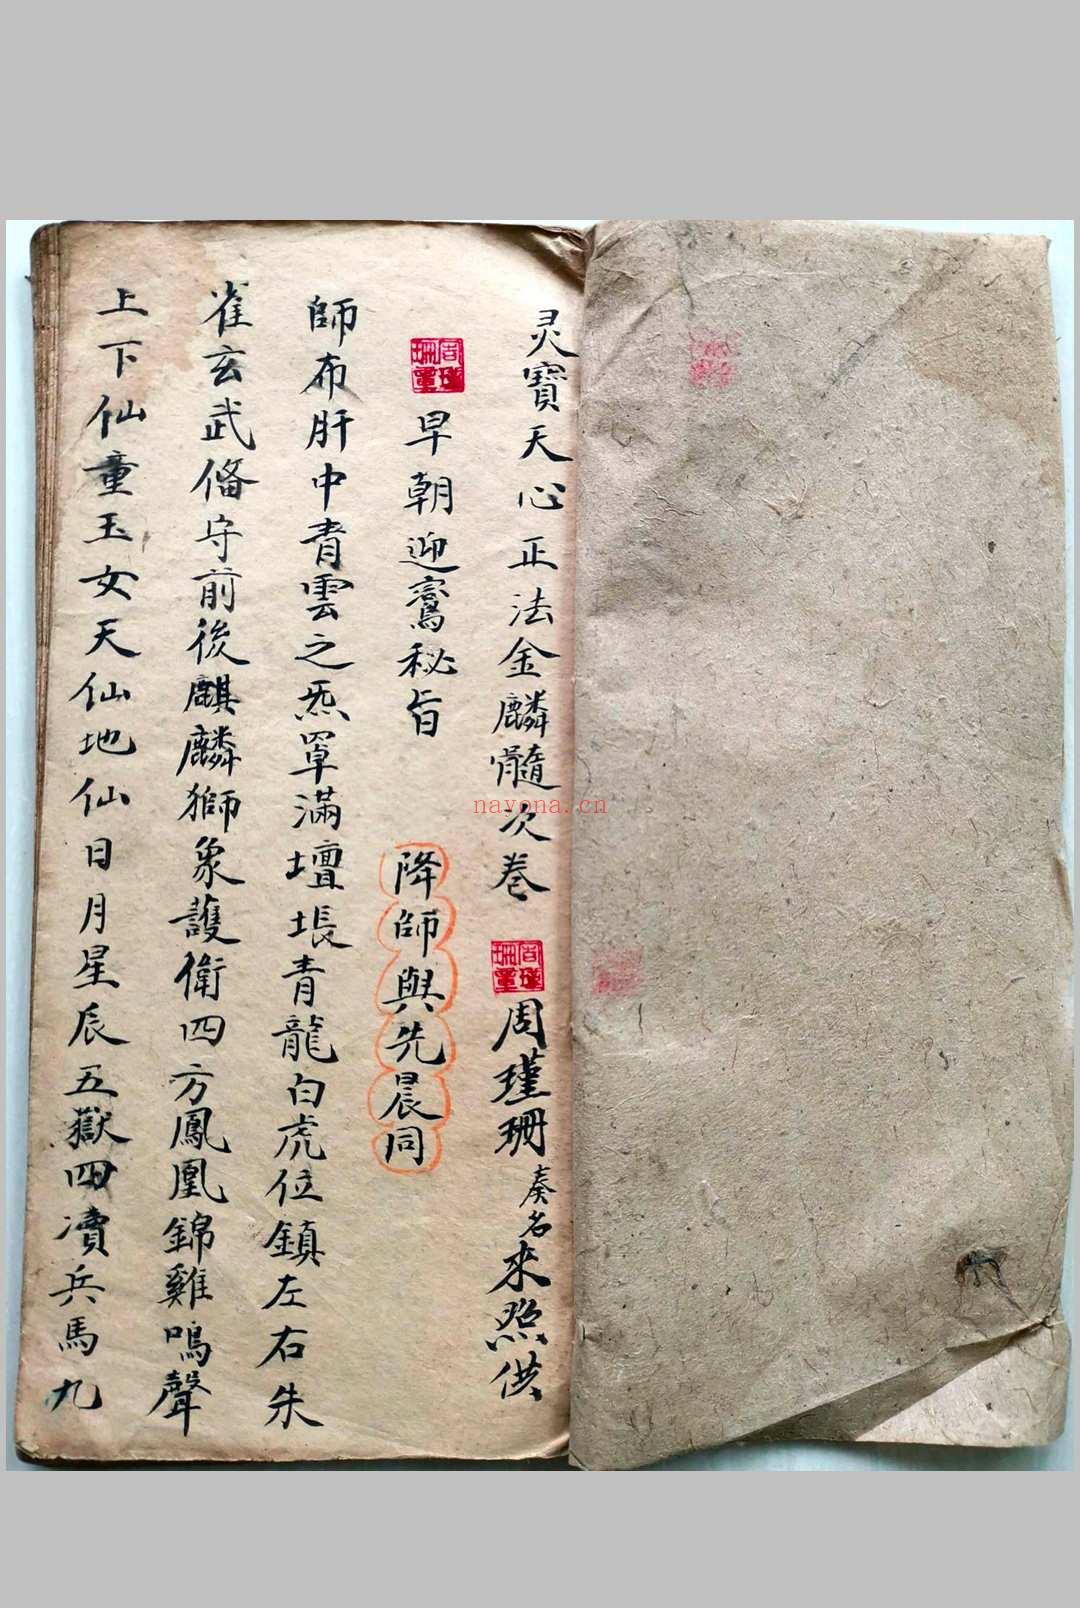 灵寶天心正法金麟髓次卷 周瑾珊 奏名來照供
周瑾珊章
周瑾珊章
早朝迎鸞秘旨 降師與先晨同
師布肝中青雲之炁罩滿壇場青龍白虎位鎮左右朱
雀玄武俻守前後麒麟獅象護衛四方鳳凰錦雞鳴聲
上下仙童玉女天仙地仙日月星辰五嶽四瀆兵馬九
nayona.cn